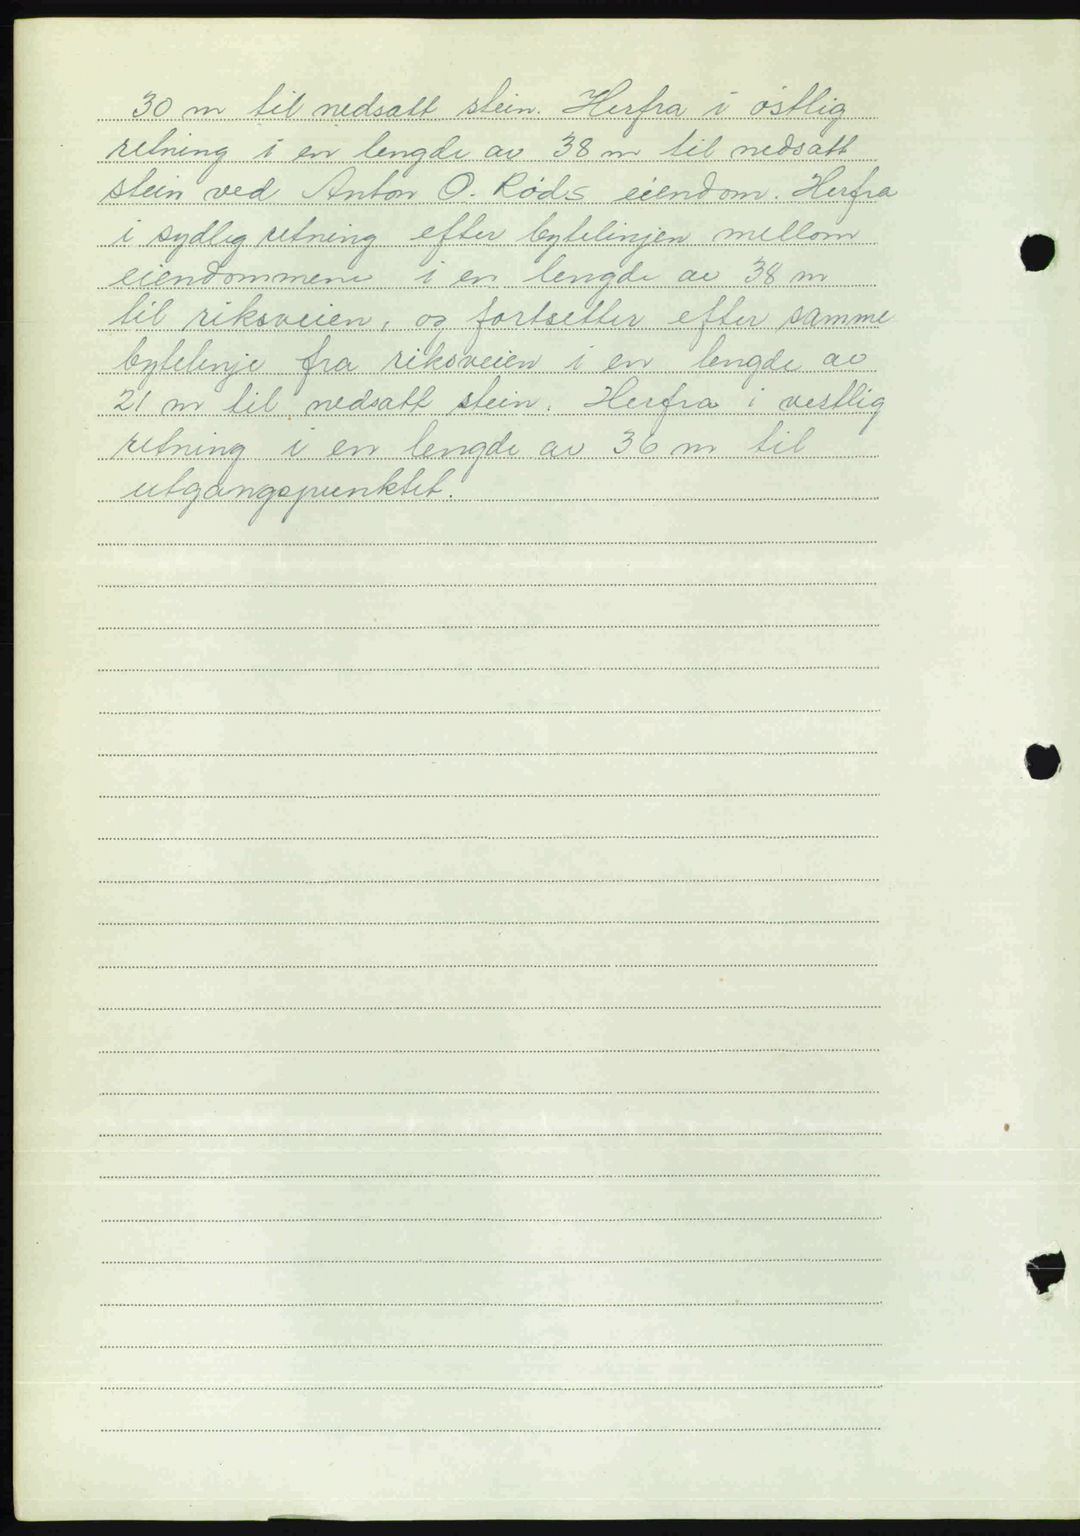 30 m til nedsatt stein. Herfra i østlig
retning i en lengde av 38 m til nedsatt
stein ved Anton O. Røds eiendom. Herfra
i sydlig retning efter bytelinjen mellom
eiendommene i en lengde av 38 m
til riksveien, og fortsetter efter samme
bytelinje fra riksveien i en lengde av
21 m til nedsatt stein. Herfra i vestlig
retning i en lengde av 36 m til
utgangspunktet.